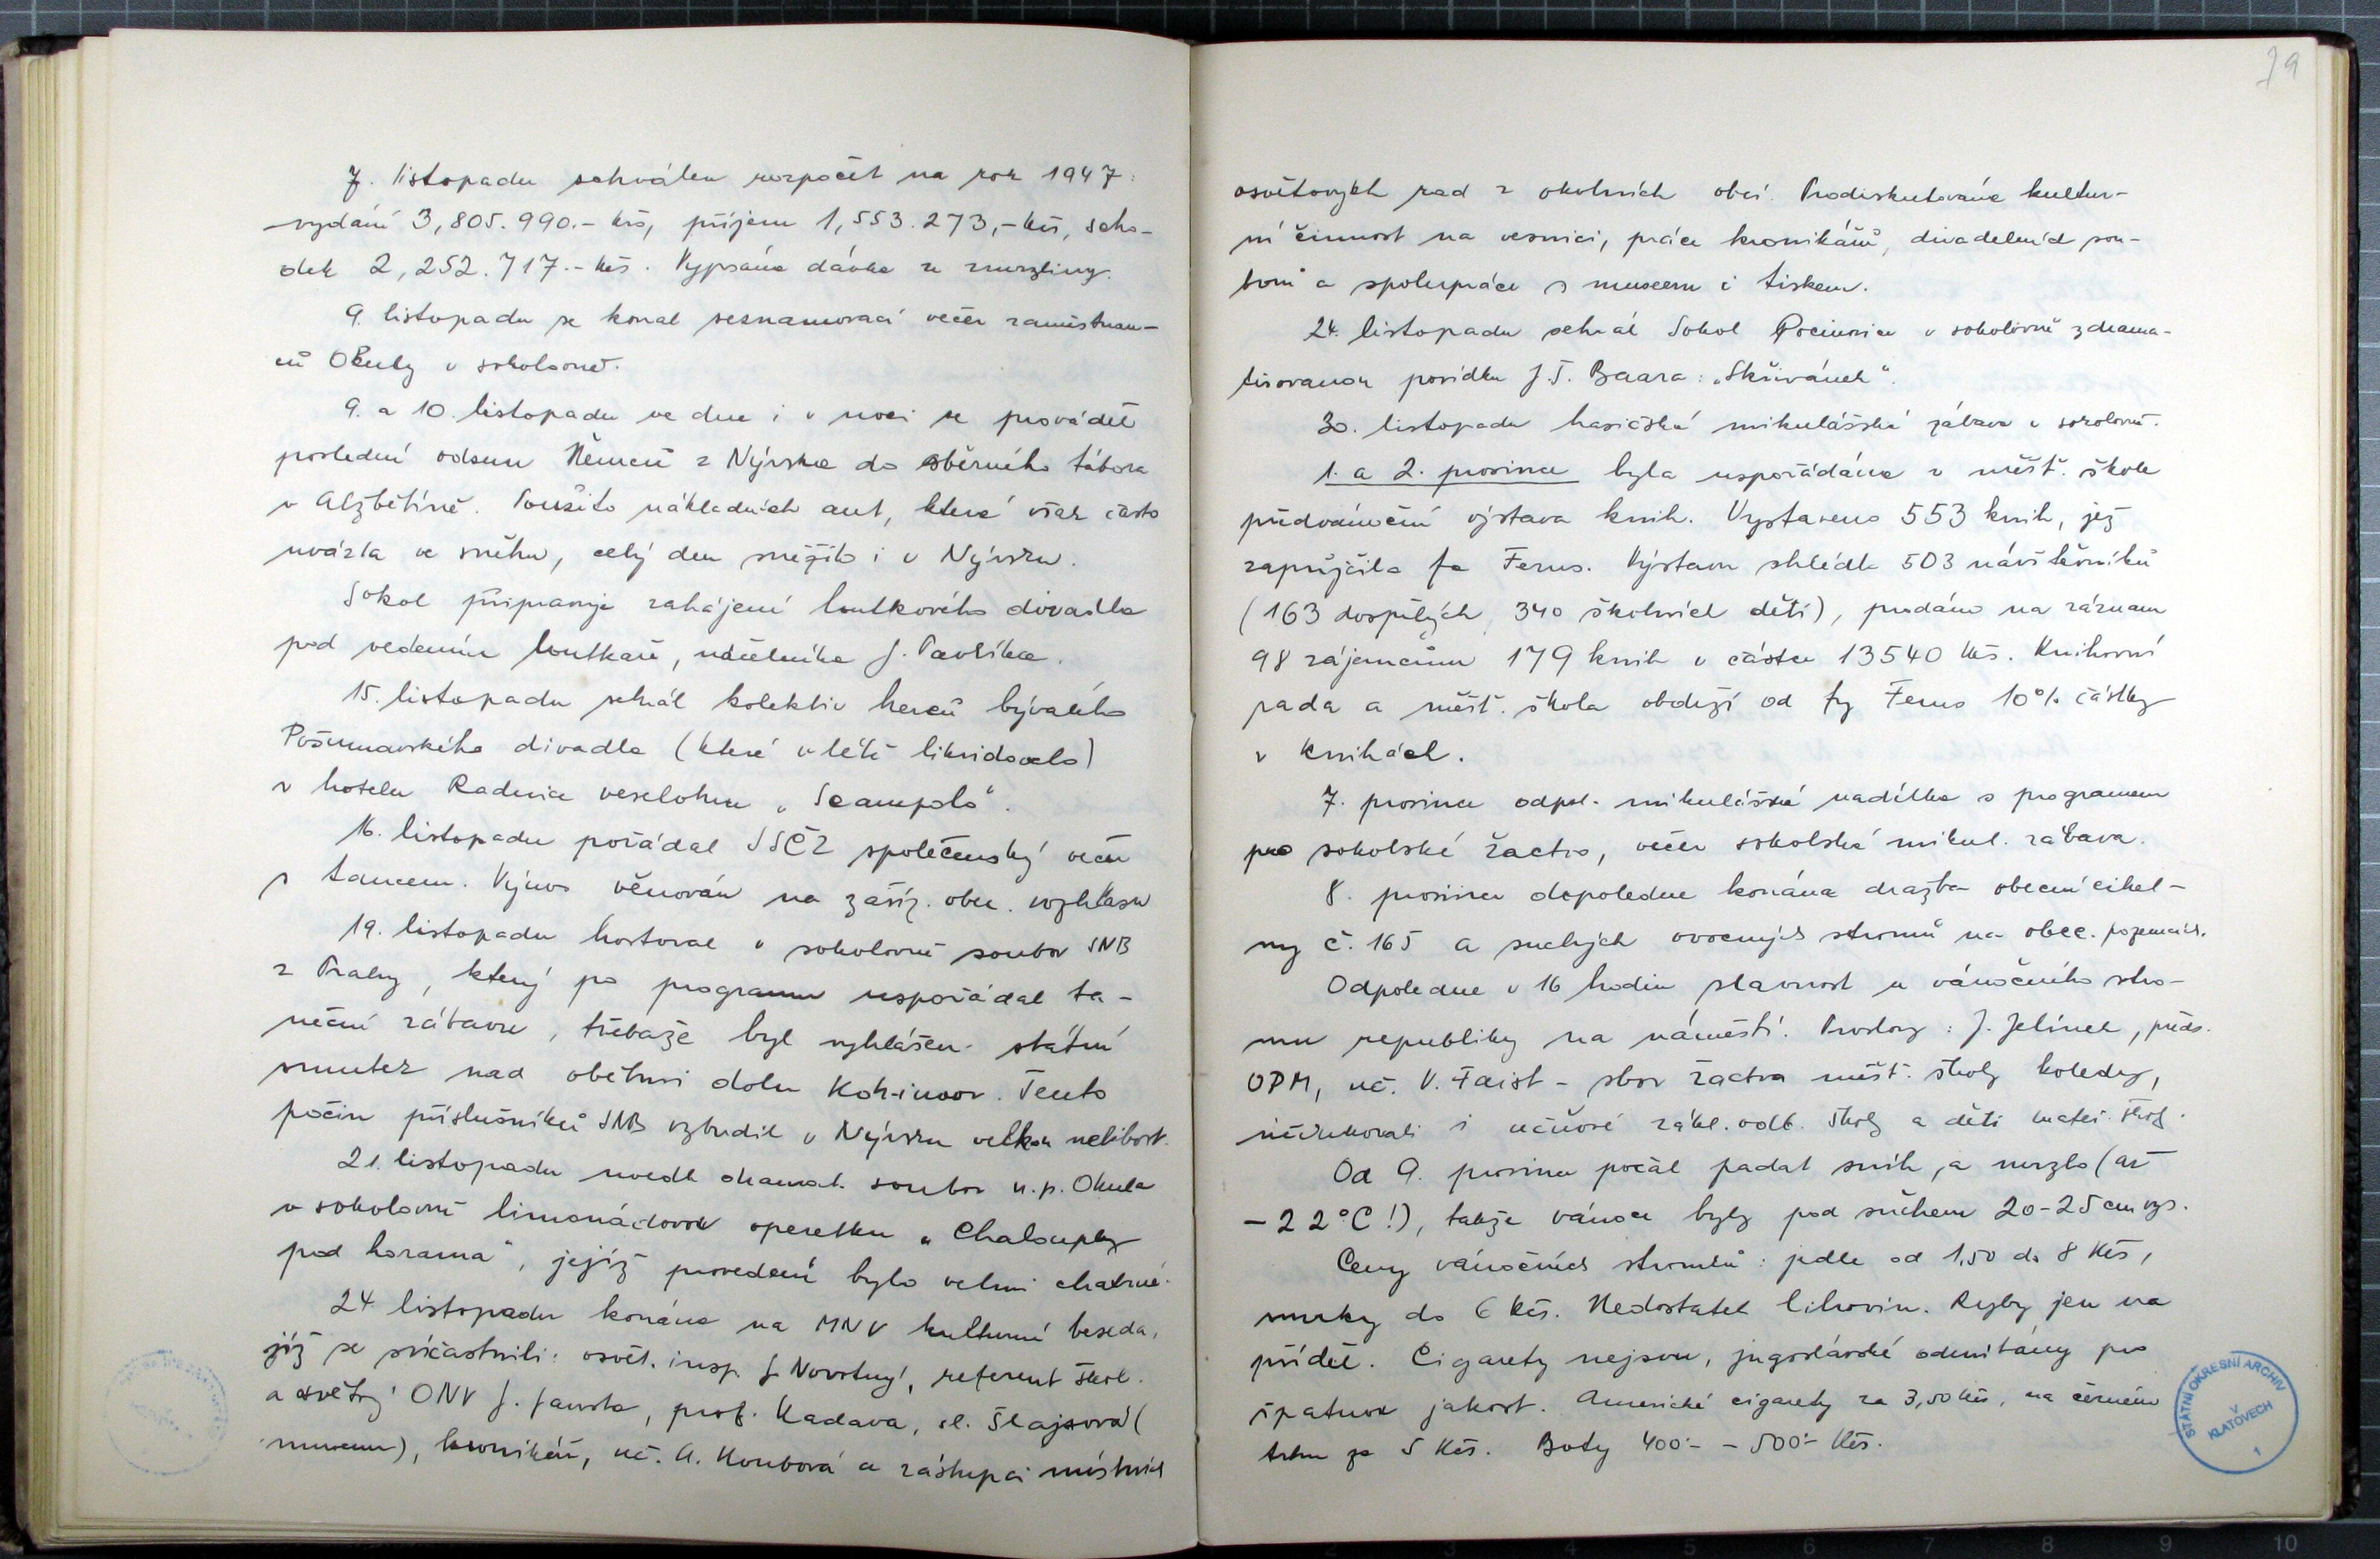 7. listopadu schválen rozpočet na rok 1947:
vydání 3,805.990.- Kčs, příjem 1,553.273,- Kčs, scho-
dek 2,252.717.- Kčs. Vypsána dávka ze zmrzliny.
9. listopadu se konal seznamovací večer zaměstnan-
ců Okuly v sokolovně.
9. a 10. listopadu ve dne i v noci se prováděl
poslední odsun Němců z Nýrska do sběrného tábora
v Alžbětíně. Použito nákladních aut, která však často
uvázla ve sněhu, celý den sněžilo i v Nýrsku.
Sokol připravuje zahájení loutkového divadla
pod vedením loutkaře, náčelníka J. Pavlíka.
15. listopadu sehrál kolektiv herců bývalého
Pošumavského divadla (které v létě likvidovalo)
v hotelu Radnice veselohru „Scampolo“.
16. listopadu pořádal SSČZ společenský večer
s tancem. Výnos věnován na zaříz. obec. rozhlasu
19. listopadu hostoval v sokolovně soubor SNB
z Prahy, který po programu uspořádal ta-
neční zábavu, třebaže byl vyhlášen státní
smutek nad obětmi dolu Koh-i-noor. Tento
počin příslušníků SNB vzbudil v Nýrsku velkou nelibost.
21. listopadu uvedl dramat. soubor n.p. Okula
v sokolovně limonádovou operetku „Chaloupky
pod horama“, jejíž provedení bylo velmi chatrné.
24. listopadu konána na MNV kulturní beseda,
jíž se súčastnili: osvět. insp. J. Novotný, referent škol.
a osvěty ONV J. Janota, prof. Kadava, sl. Šlajsová (
museum), kronikář, uč. A. Koubová a zástupci místních
79
osvětových rad z okolních obcí. Prodiskutována kultur-
ní činnost na vesnici, práce kronikářů, divadelních sou-
borů a spolupráce s museem i tiskem.
24. listopadu sehrál Sokol Pocinovice v sokolovně zdrama-
tisovanou povídku J.Š. Baara: „Skřivánek“.
30. listopadu hasičská mikulášská zábava v sokolovně.
1. a 2. prosince byla uspořádána v měšť. škole
předvánoční výstava knih. Vystaveno 553 knih, jež
zapůjčila fa Ferus. Výstavu shlédlo 503 návštěvníků
(163 dospělých, 340 školních dětí), prodáno na záznam
98 zájemcům 179 knih v částce 13540 Kčs. Knihovní
rada a měšť. škola obdrží od fy Ferus 10% částky
v knihách.
7. prosince odpol. mikulášská nadílka s programem
pro sokolské žactvo, večer sokolská mikul. zábava.
8. prosince dopoledne konána dražba obecní cihel-
ny č. 165 a suchých ovocných stromů na obec. pozemcích.
Odpoledne v 16 hodin slavnost u vánočního stro-
mu republiky na náměstí. Proslovy: J. Jelínek, předs.
OPM, uč. V. Faist - sbor žactva měšť. školy koledy,
účinkovali i učňové zákl. odb. školy a děti mateř. školy.
Od 9. prosince počal padat sníh, a mrzlo (až
-22°C!), takže vánoce byly pod sněhem 20-25 cm vys.
Ceny vánočních stromků: jedle od 1,50 do 8 Kčs,
smrky do 6 Kčs. Nedostatek lihovin. Ryby jen na
příděl. Cigarety nejsou, jugoslávské odmítány pro
špatnou jakost. Americké cigarety za 3,50 Kčs, na černém
trhu za 5 Kčs. Boty 400.- - 500.- Kčs.
STÁTNÍ OKRESNÍ ARCHIV
V
KLATOVECH
1
2 3 4 5 6 7 8 9 10